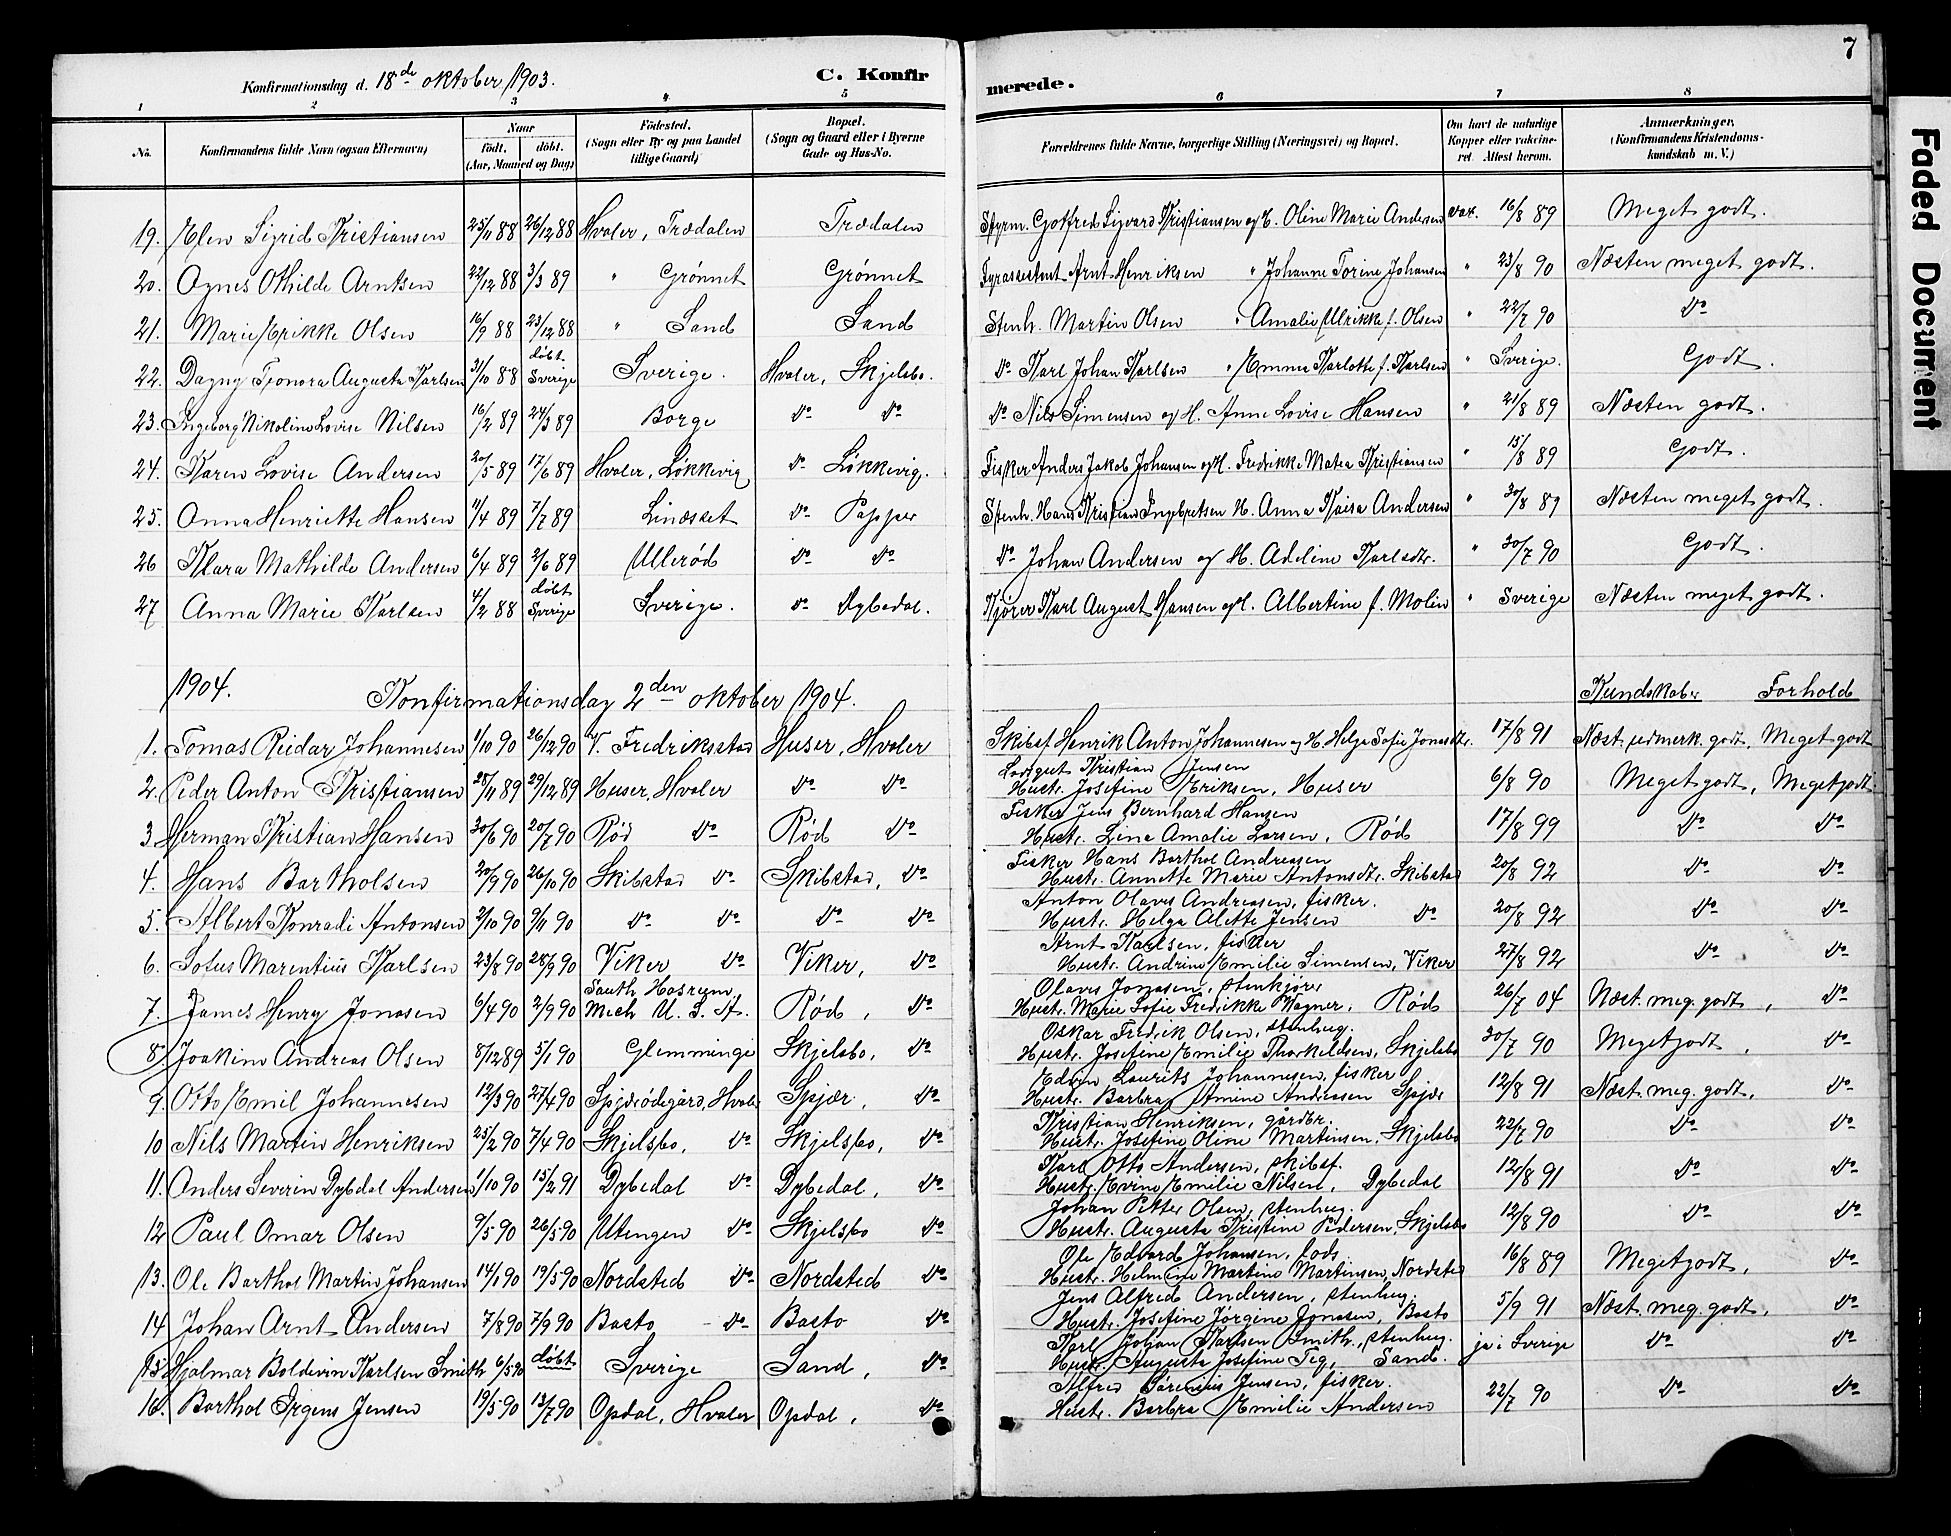 7
Konfirmationsdag d. 18de oktober 1903.
C. Konfirmerede.
1 2 3 4 5 6 7 8
No. Konfirmandens fulde Navn (ogsaa Efternavn) Naar født, døbt. (Aar, Maaned og Dag) Fødested. (Sogn eller By og paa Landet tillige Gaard) Bopæl. (Sogn og Gaard eller i Byerne Gade og Hus-No. Forældrenes fulde Navne, borgerlige Stilling (Næringsvei) og Bopæl. Om havt de naturlige Kopper eller vaccineret. Attest herom. Anmærkninger, (Konfirmandens Kristendomskundskab m. V.)
19. Elen Sigrid Kristiansen 25/11 88 26/12 88 Hvaler, Trædalen Trædalen Styrm. Gotfred Sigvard Kristiansen og H. Oline Marie Andersen vax. 16/8 89 Meget godt.
20. Agnes Othilde Arntsen 22/12 88 3/3 89 " Grønnet Grønnet Fyrassistent Arnt Henriksen " Johanne Torine Johansen " 23/8 90 Næsten meget godt.
21. Marie Erikke Olsen 16/9 88 23/12 88 " Sand Sand Stenh. Martin Olsen " Amalie Ulrikke f. Olsen " 22/7 90 Do
22. Dagny Eonora Augusta Karlsen 31/10 88 døbt Sverige Sverige. Hvaler, Skjelsbo. Do Karl Johan Karlsen " Emma Karlotte f. Karlsen " Sverige. Godt.
23. Ingeborg Nikoline Lovise Nilsen 16/2 89 24/3 89 Borge Do Do Do Nils Simensen og H. Anne Lovise Hansen " 21/8 89 Næsten godt.
24. Karen Lovise Andersen 20/5 89 17/6 89 Hvaler, Løkkevig Do Løkkevig. Fisker Anders Jakob Johansen og H. Fredrikke Matea Kristiansen " 15/8 89 Godt.
25. Anna Henriette Hansen 11/4 89 7/7 89 Linæsset Do Papper Stenh. Hans Kristian Ingebretsen H. Anna Kaisa Andersen " 30/8 89 Næsten meget godt.
26 Klara Mathilde Andersen 6/4 89 2/6 89 Ullerød Do Do Do Johan Andersen og H. Adeline Karlsdtr. " 30/7 90 Godt.
27 Anna Marie Karlsen 4/2 88 døbt Sverige Sverige. Do Dybedal. Kjører Karl August Hansen og H. Albertine f. Molin " Sverige Næsten meget godt.
1904. Konfirmationsdag 2den oktober 1904. Kundskaber Forhold
1. Tomas Reidar Johannesen 1/10 90 26/12 90 V. Fredriksstad Huser, Hvaler Skibsf. Henrik Anton Johannesen og H. Helga Sofie Jonasdtr. 17/8 91 Næst udmerk. godt, Meget godt
2. Peder Anton Kristiansen 28/11 89 29/12 89 Huser, Hvaler Do Do Kristian Jensen
Hustr. Josefine Eriksen, Huser 6/8 90 Meget godt, Meget godt
3. Herman Kristian Hansen 30/6 90 20/7 90 Rød Do Rød Do Fisker Jens Bernhard Hansen
Hustr. Lina Amalie Larsen, Rød 17/8 99 Do Do
4. Hans Bartholsen 20/9 90 26/10 90 Skibstad Do Skibstad, Do Fisker Hans Barthol Andreasen
Hustr. Annette Marie Antonsdtr. Skibstad 20/8 92 Do Do
5. Albert Konradi Antonsen 2/10 90 9/11 90 Do Do Do Do Anton Olaves Andreasen, fisker.
Hustr. Helga Alette Jensen Do 20/8 92 Do Do
6. Lotus Marentius Karlsen 23/8 90 28/9 90 Viker Do Viker, Do Arnt Karlsen, fisker
Hustr. Andrine Emilie Simensen, Viker 27/8 92 Do Do
7. James Henry Jonasen 6/4 90 2/9 90 South Mich U. S. A. Rød, Do Olaves Jonasen, stenkjører
Hustr. Marie Sofie Fredrikke Wagner, Rød 26/7 04 Næst. meg. godt, Do
8. Joakim Andreas Olsen 8/12 89 5/1 90 Glemminge Skjelsbo, Do Oskar Fredrik Olsen, stenhug.
Hustr. Josefine Emilie Thorkeldsen, Skjelsbo 30/7 90 Meget godt, Do
9. Otto Emil Johannesen 12/3 90 27/4 90 Spjærødegård, Hvaler Spjær, Do Edvin Laurits Johannesen, fisker
Hustr. Barbra Amine Andreasen Spjær 12/8 91 Næst meg. godt, Do
10 Nils Martin Henriksen 25/2 90 7/4 90 Skjelsbo, Do Skjelsbo, Do Kristian Henriksen, gårdbr.
Hustr. Josefine Oline Martinsen, Skjelsbo 22/7 90 Do Do
11. Anders Severin Dybdal Andersen 1/10 90 15/2 91 Dybedal Do Dybedal, Do Karl Otto Andersen, skibsf.
Hustr. Evine Emilie Nilsen, Dybedal 12/8 91 Do Do
12 Paul Omar Olsen 9/5 90 26/5 90 Utengen Do Skjelsbo Do Johan Petter Olsen, stenhug.
Hustr. Augusta Kristine Pedersen, Skjelsbo 12/8 90 Do Do
13. Ole Barthol Martin Johansen 14/1 90 19/5 90 Nordsted Do Nordsted Do Ole Edvard Johansen, lods
Hustr. Helmine Martine Martinsen, Nordsted 16/8 89 Meget godt, Do
14 Johan Arnt Andersen 7/8 90 7/9 90 Basto Do Basto Do Jens Alfred Andersen, stenhug.
Hustr. Josefine Jørgine Jonasen, Basto 5/9 91 Næst. meg. godt, Do
15 Hjalmar Boldevin Karlsen Smith 6/5 90 døbt Sverige Sand, Do Karl Johan Karlsen Smith, stenhug.
Hustr. Augusta Josefine Teg, Sand. ja i Sverige Do Do
16. Barthol Irgens Jensen 19/5 90 13/7 90 Opdal, Hvaler Opdal, Do Alfred Sørenius Jensen, fisker.
Hustr. Barbra Emilie Andersen 22/7 90 Do Do
Faded Document